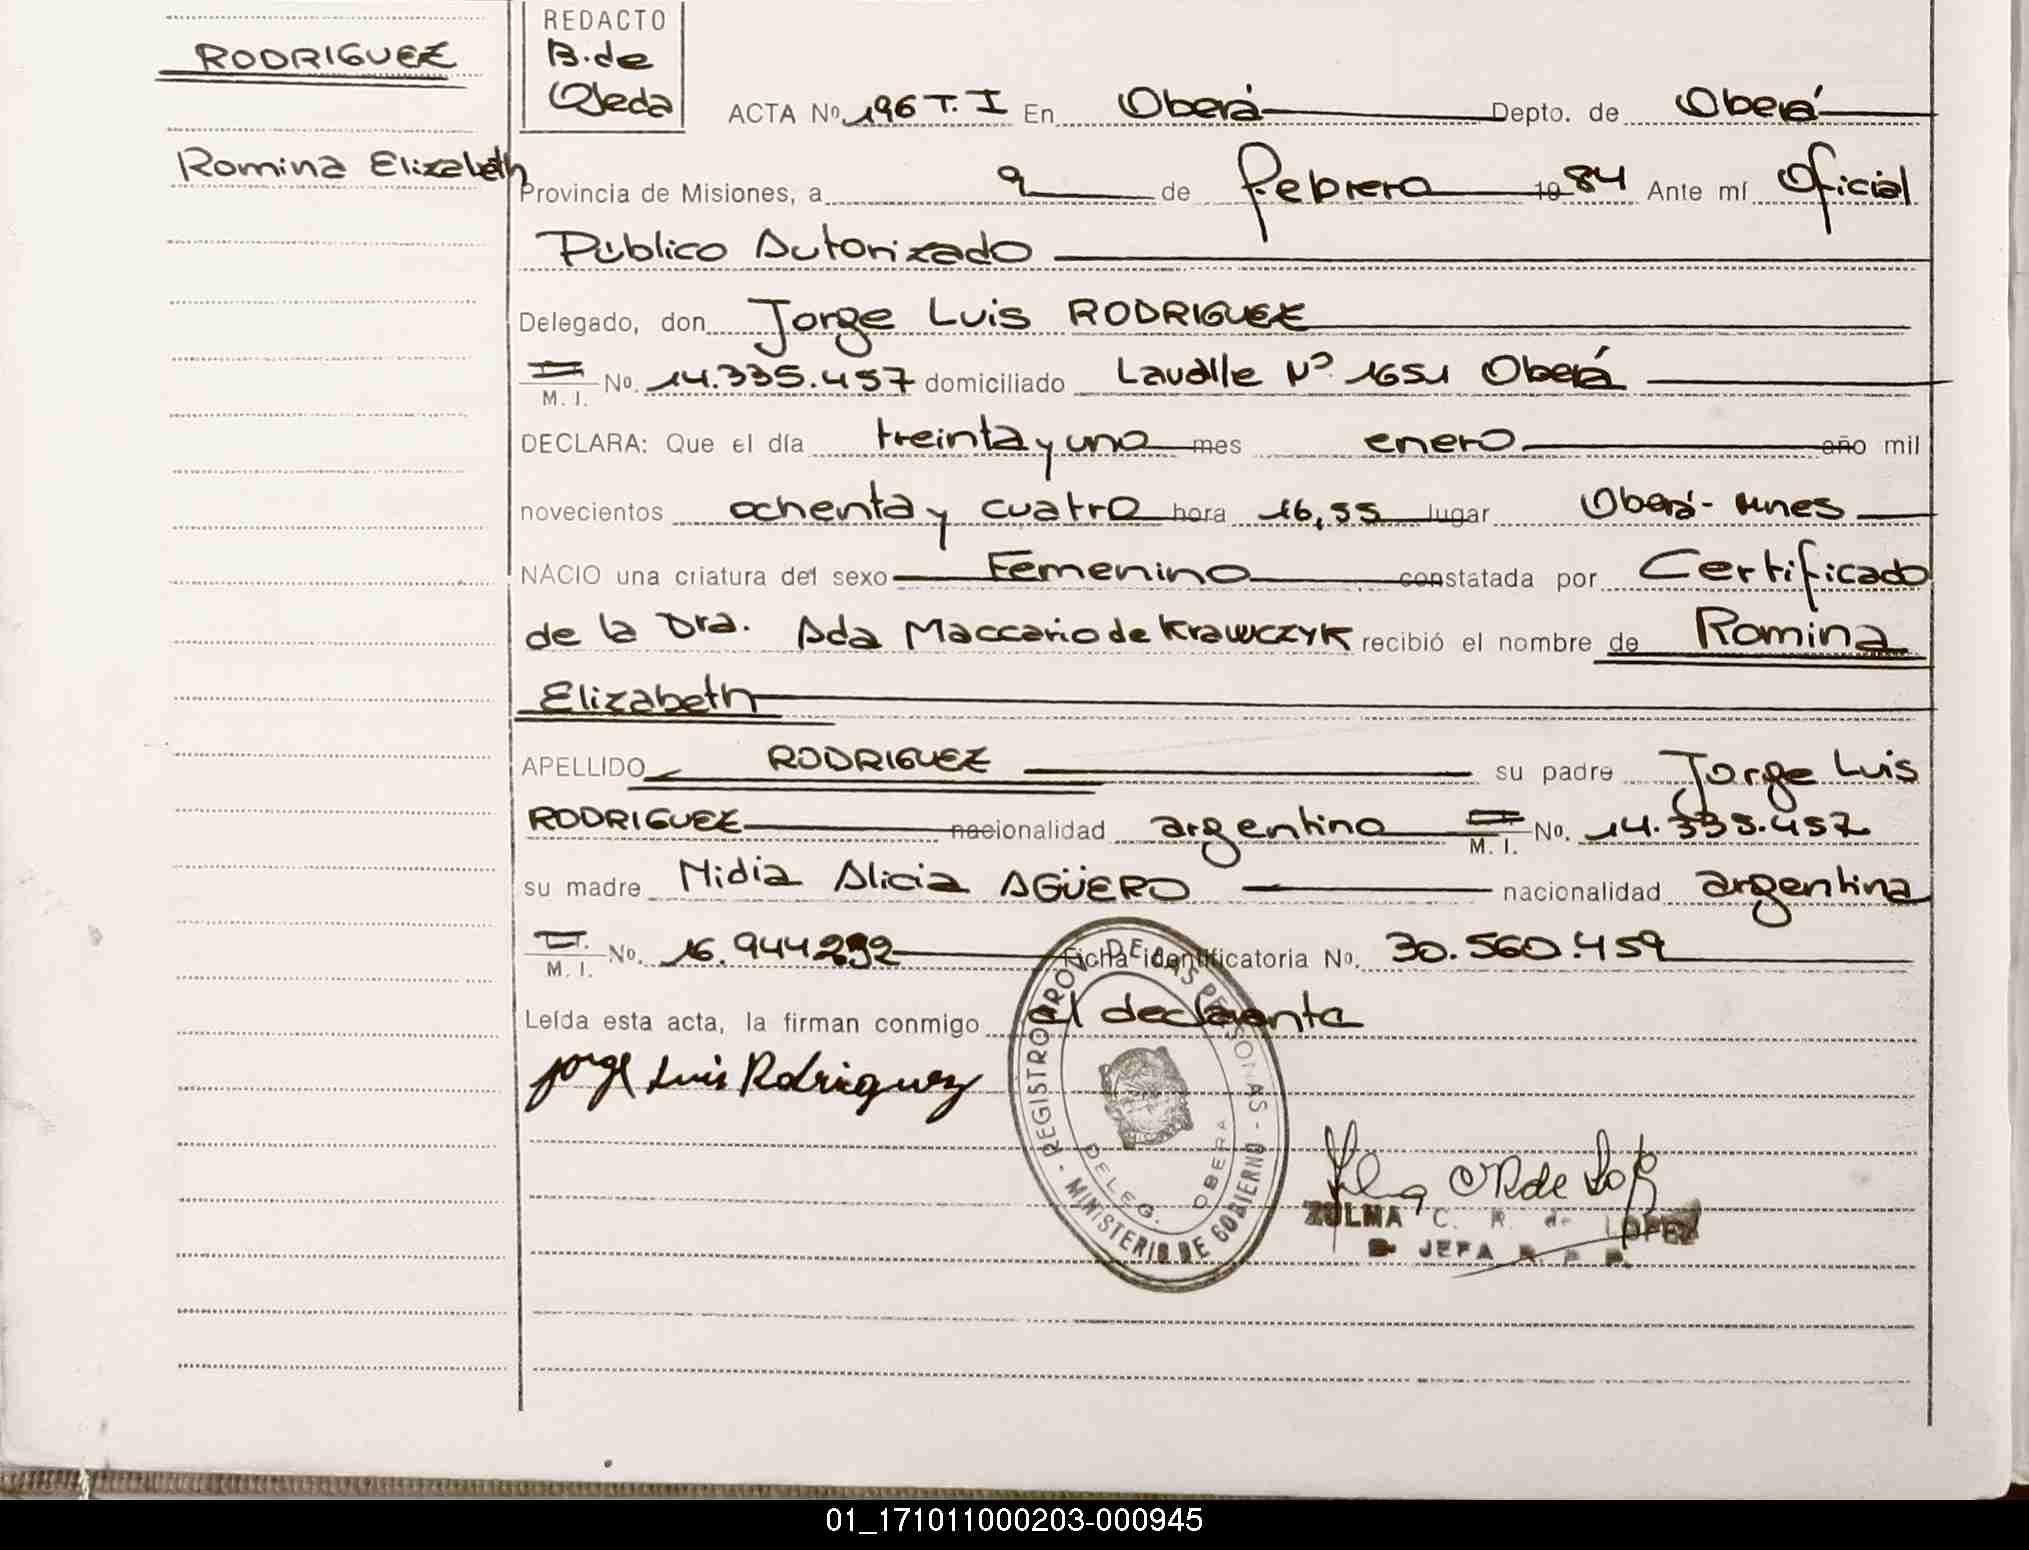 RODRIGUEZ
Romina Elizabeth
REDACTO
B. de
Ojeda
ACTA Nº 196 T. I En Oberá Depto. de Oberá
Provincia de Misiones, a 9 de febrero 1984 Ante mí Oficial
Público Autorizado
Delegado, don Jorge Luis RODRIGUEZ
M. I. No. 14.335.457 domiciliado Lavalle Nº 1651 Oberá
DECLARA: Que el día treinta y uno mes enero año mil
novecientos ochenta y cuatro hora 16,55 lugar Oberá - Mnes
NACIO una criatura del sexo Femenino constatada por Certificado
de la Dra. Ada Maccario de Krawczyk recibió el nombre de Romina
Elizabeth
APELLIDO RODRIGUEZ su padre Jorge Luis
RODRIGUEZ nacionalidad argentino M. I. No. 14.335.457
su madre Nidia Alicia AGÜERO nacionalidad argentina
M. I. No. 16.944292 Ficha identificatoria No. 30.560.459
Leída esta acta, la firman conmigo el declarante
Jorge Luis Rodriguez
REGISTRO PROV. DE LAS PERSONAS - MINISTERIO DE GOBIERNO -
DELEG. OBERA
ZULMA C. R. de LOPEZ
JEFA R. P. P.
01_171011000203-000945